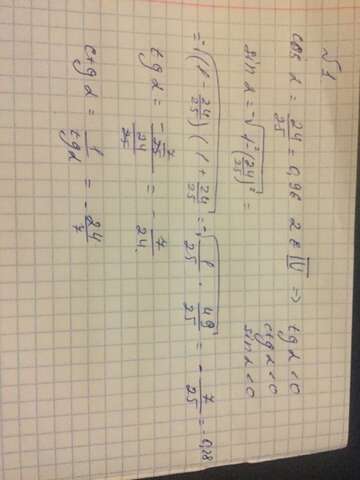 √1
cos α = 24/25 = 0,96 α ∈ IV => tg α < 0
ctg α < 0
sin α < 0
sin α = -√(1-(24/25)²) =
= -√((1-24/25)(1+24/25)) = -√(1/25 · 49/25) = -7/25 = -0,28
tg α = -(7/25)/(24/25) = -7/24.
ctg α = 1/tg α = -24/7